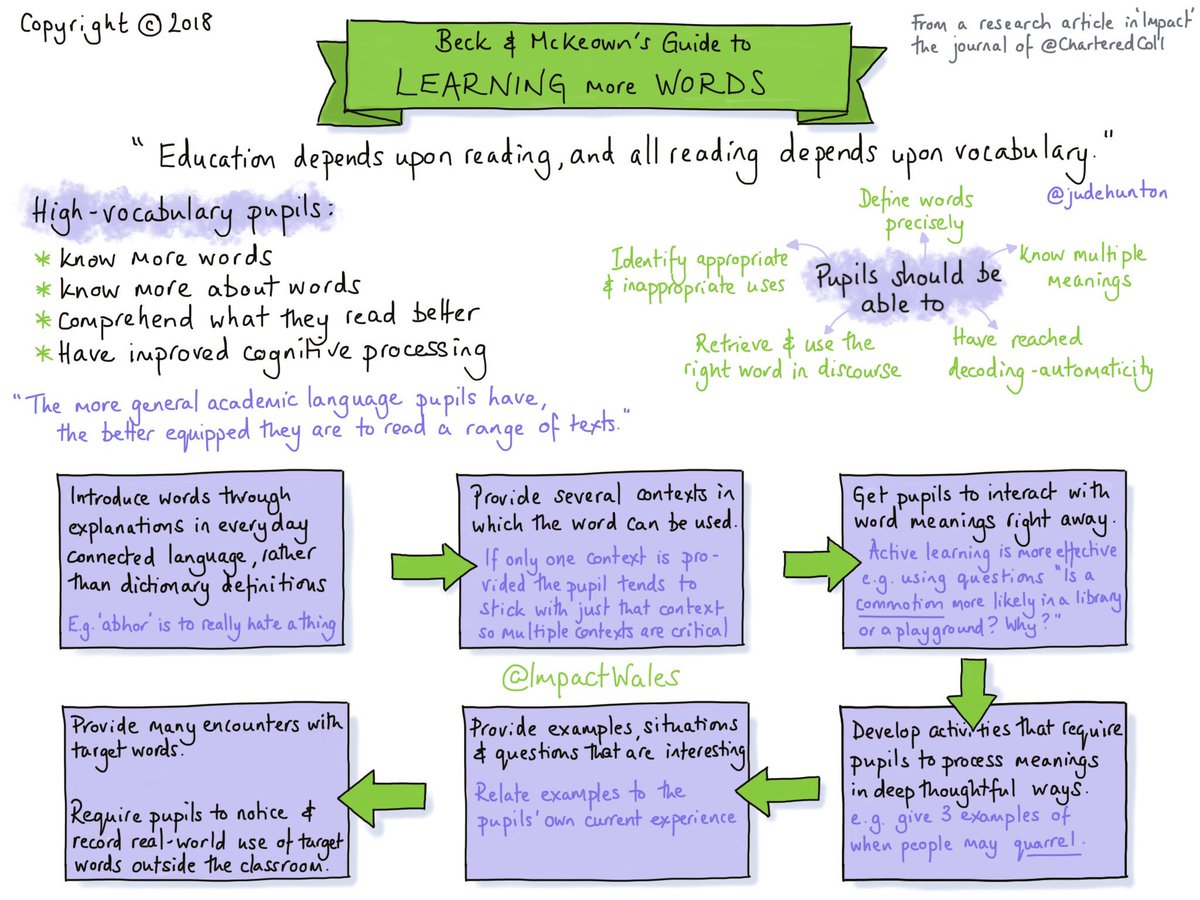 Copyright © 2018
Beck & McKeown's Guide to
LEARNING more WORDS
From a research article in 'Impact'
the journal of @CharteredColl
"Education depends upon reading, and all reading depends upon vocabulary."
@judehunton
High-vocabulary pupils:
* Know more words
* Know more about words
* Comprehend what they read better
* Have improved cognitive processing
Pupils should be
able to
Identify appropriate
& inappropriate uses
Define words
precisely
Know multiple
meanings
Retrieve & use the
right word in discourse
Have reached
decoding-automaticity
"The more general academic language pupils have,
the better equipped they are to read a range of texts."
Introduce words through
explanations in everyday
connected language, rather
than dictionary definitions
E.g. 'abhor' is to really hate a thing
Provide several contexts in
which the word can be used.
If only one context is pro-
vided the pupil tends to
stick with just that context
so multiple contexts are critical
Get pupils to interact with
word meanings right away.
Active learning is more effective
e.g. using questions "Is a
commotion more likely in a library
or a playground? Why?"
@ImpactWales
Develop activities that require
pupils to process meanings
in deep thoughtful ways.
e.g. give 3 examples of
when people may quarrel.
Provide examples, situations
& questions that are interesting
Relate examples to the
pupils' own current experience
Provide many encounters with
target words.
Require pupils to notice &
record real-world use of target
words outside the classroom.